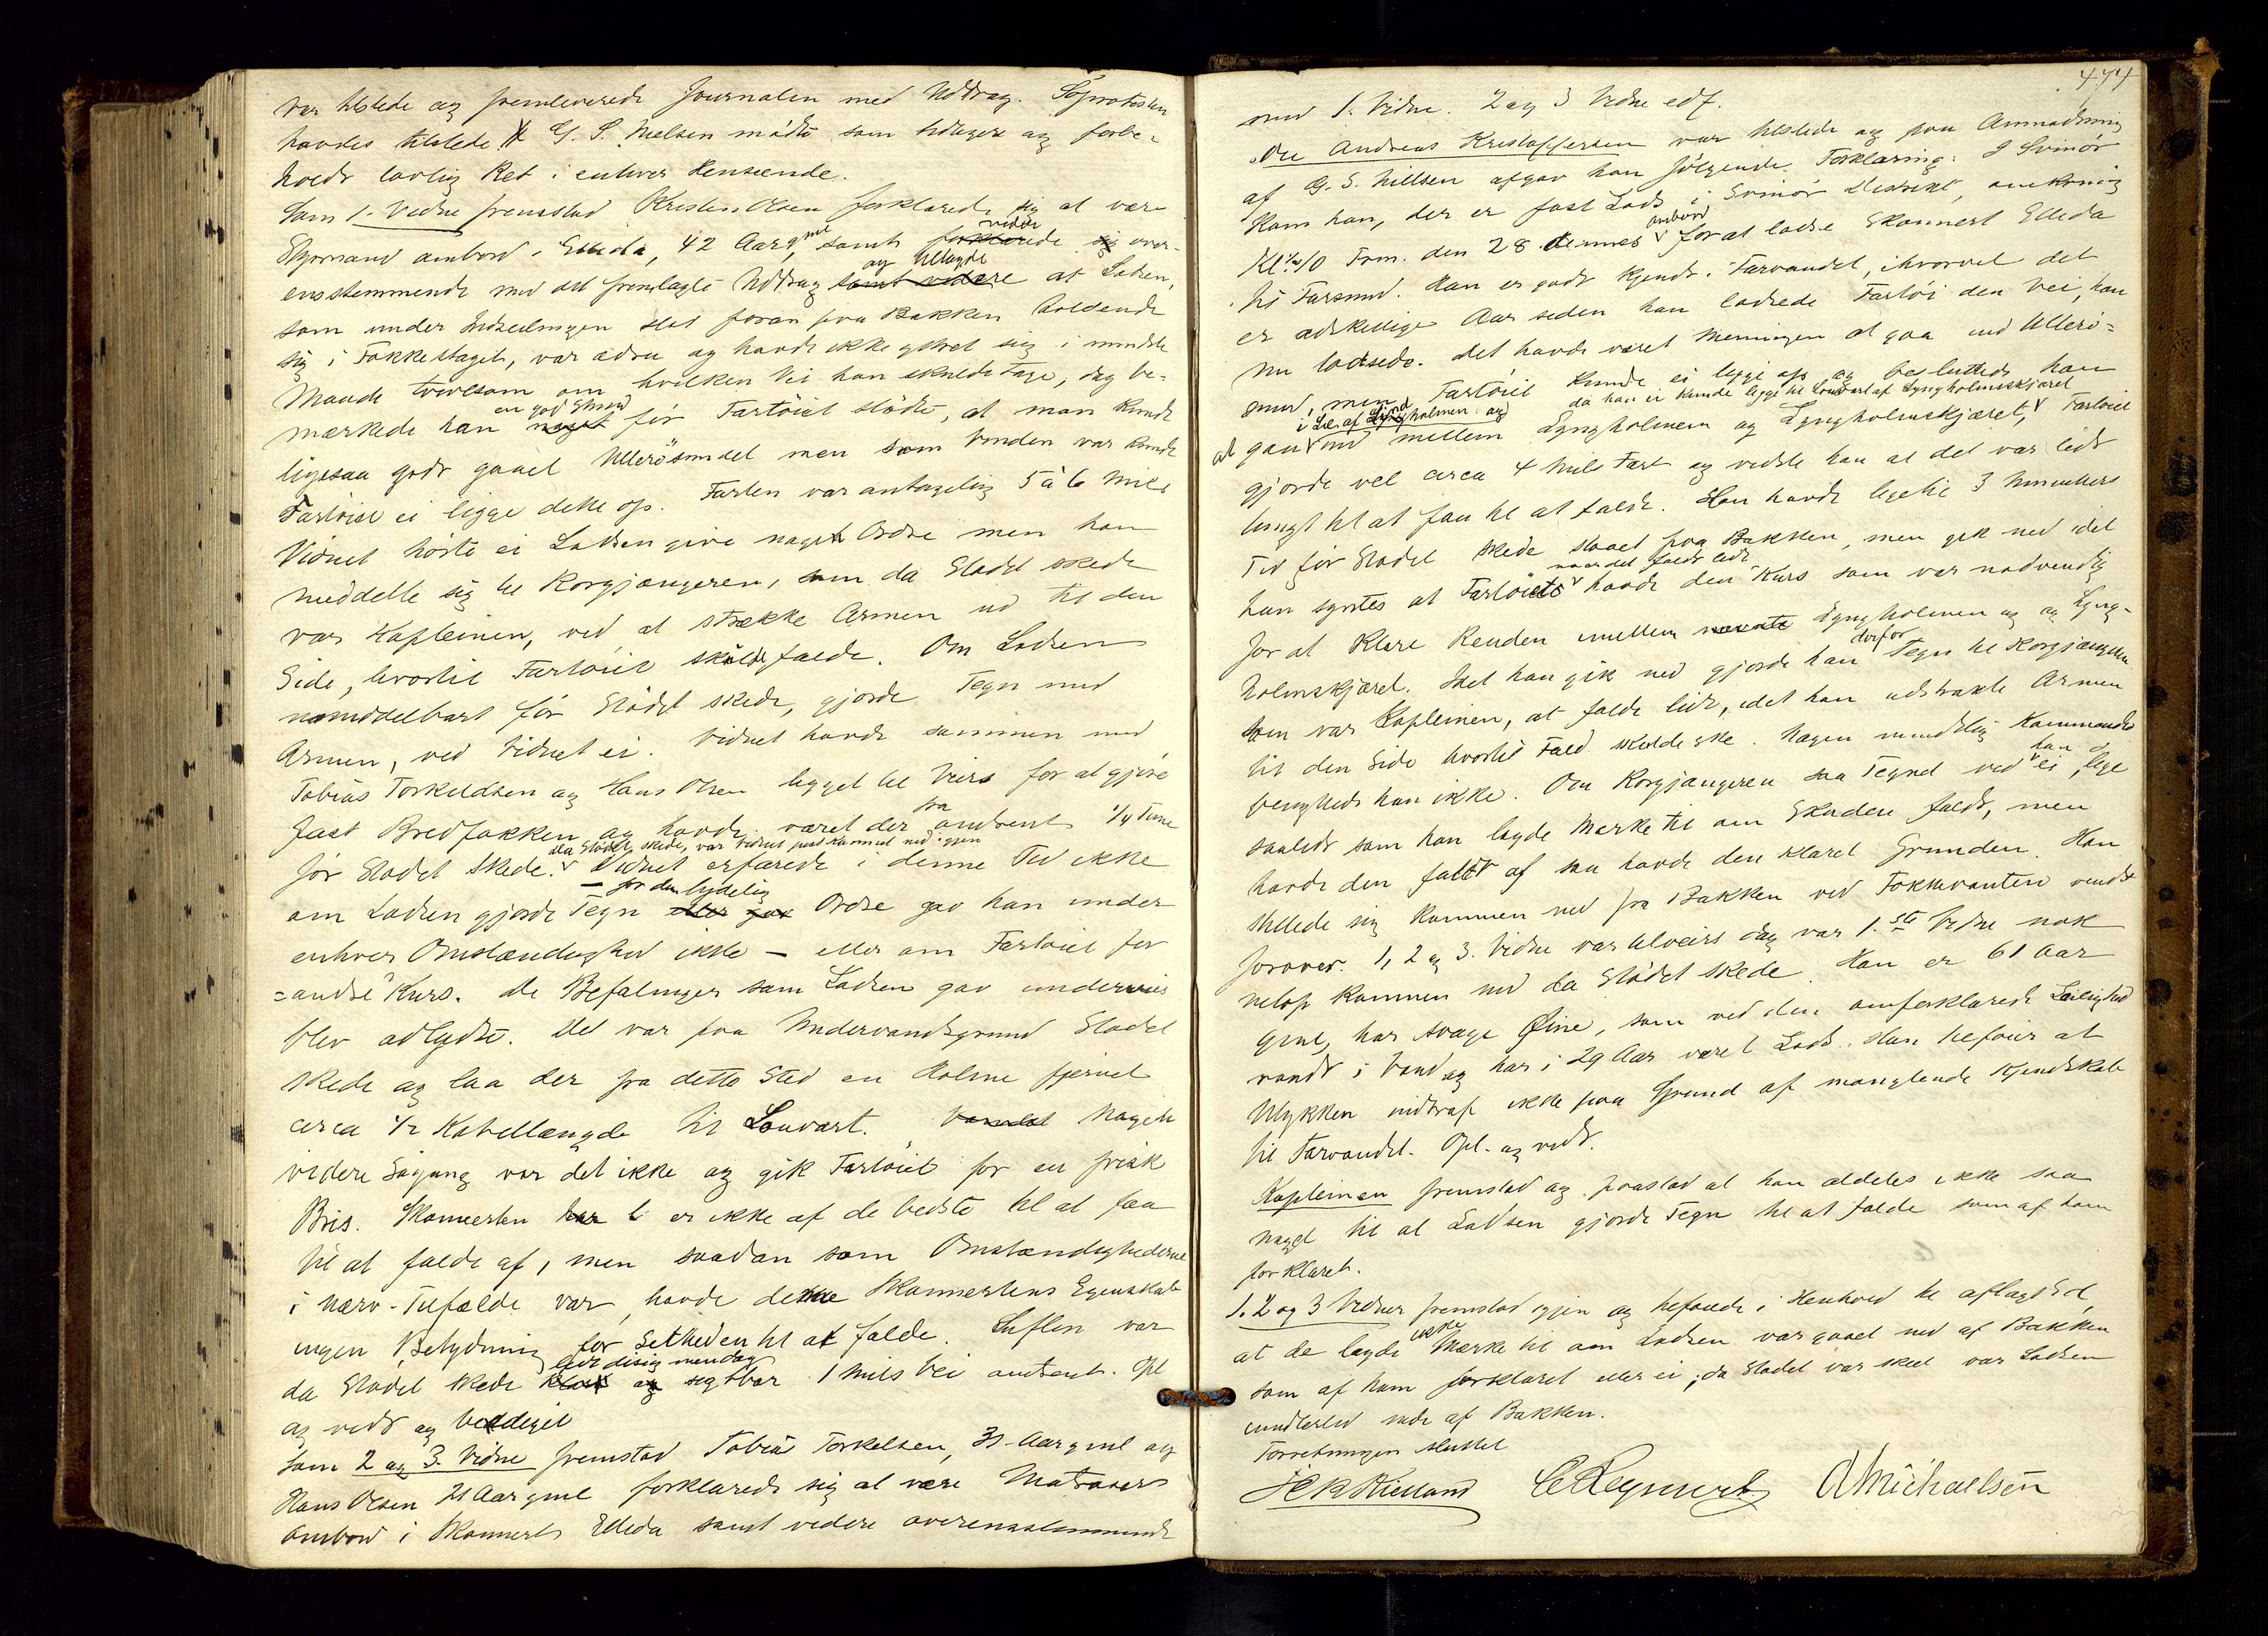 var tilstede og fremleverede Journalen med Uddrag. Søprotesten
havdes tilstede G. S. Nielsen mødte som tidligere og forbe-
holdt lovlig Ret i enhver Henseende.
Som 1. Vidne fremstod Kristen Olsen forklarede sig at være
Styrmand ombord i Elleda, 42 Aar gml samt forklarede vidre sig over-
ensstemmende med det fremlagte Uddrag samt videre og tilføiede at Lodsen,
som under Indseilingen stod foran paa Bakken holdende
sig i Fokkestaget, var ædru og havde ikke ytret sig i mindste
Maade tvivlsom om hvilken Vei han skulde tage, dog be-
mærkede han noget en god Stund før Fartøiet stødte, at man kunde
ligesaa godt gaaet Ullerøsundet men som Vinden var kunde
Fartøiet ei ligge dette op. Farten var antagelig 5 à 6 Mile
Vidnet hørte ei Lodsen give noget Ordre men han
meddelte sig til Rorgjængeren, som da Stødet skede
var Kapteinen, ved at strække Armen ud til den
Side, hvortil Fartøiet skulde falde. Om Lodsen
umiddelbart før Stødet skede, gjorde Tegn med
Armen, ved Vidnet ei. Vidnet havde sammen med
Tobias Torkeldsen og Hans Olsen ligget til Veirs for at gjøre
fast Bredfokken og havde været der fra omtrent 1/4 Time
før Stødet skede. da Stødet skede, var Vidnet just kommet ned igjen Vidnet erfarede i denne Tid ikke
om Lodsen gjorde Tegn eller gav – for den lydelig Ordre gav han under
enhver Omstændighed ikke – eller om Fartøiet for-
=andre Kurs. De Befalinger som Lodsen gav underveis
blev adlydte. Det var paa Undervandsgrund Stødet
skede og laa der fra dette Sted en Holme fjernet
circa 1/2 Kabellængde til Louvart. Nogen
videre Søgang var det ikke og gik Fartøiet for en frisk
Bris. Skonnerten er ikke af de bedste til at faa
til at falde af, men saadan som Omstændighederne
i nærv. Tilfælde var, havde denne Skonnertens Egenskab
ingen Betydning for Setheden til at falde. Luften var
da Stødet skede klar og lidt disig men dog sigtbar 1 Mils Vei omtrent. Opl
og vedt og beediget
Som 2 og 3. Vidne fremstod Tobias Torkelsen, 31 Aar gml og
Hans Olsen 21 Aar gml forklarede sig at være Matroser
ombord i Skonnert Elleda samt videre overensstemmende
474
med 1. Vidne. 2 og 3 Vidne edf.
Ole Andreas Kristoffersen var tilstede og paa Anmodning
af G. S. Nillsen afgav han følgende Forklaring: I Svinør
kom han, der er fast Lods i Svinør Distrikt, omkring
Kl 1/2 10 Fom. den 28 dennes ombord for at lodse Skonnert Elleda
til Farsund. Han er godt kjendt i Farvandet, ihvorvel det
er adskillige Aar siden han lodsede Fartøi den Vei, han
nu lodsede. Det havde været Meningen at gaa ind Ullerø=
sund, men Fartøiet kunde ei ligge op og besluttede han
i Læ af Lyngholmen og da han ei kunde ligge til Louvart af Lyngholmskjæret
at gaa ind mellem Lyngholmen og Lyngholmskjæret, Fartøiet
gjorde vel circa 4 Mils Fart og vidste han at det var lidt
tungt til at faa til at falde. Han havde ligetil 3 Minuters
Tid før Stødet skede staaet paa Bakken, men gik ned idet
han syntes at Fartøiet naar det faldt lidt havde den Kurs som var nødvendig
for at klare Renden mellem Lyngholmen og Lyng-
holmskjæret. Idet han gik ned gjorde han derfor Tegn til Rorgjængeren
som var Kapteinen, at falde lidt, idet han udstrakte Armen
til den Side hvortil Fald skulde ske. Nogen mundtlig Kommando
benyttede han ikke. Om Rorgjængeren saa Tegnet ved han ei, lige
saalidt som han lagde Mærke til om Skuden faldt, men
havde den faldt af saa havde den klaret Grunden. Han
stillede sig kommen ned fra Bakken ved Fokkevanten vendt
forover. 1, 2 og 3. Vidne var tilveirs dog var 1.ste Vidne nok
netop kommen ned da Stødet skede. Han er 61 Aar
gml, har svage Øine, som ved den omforklarede Leilighed
randt i Vand og har i 29 Aar været Lods. Han tilføier at
Ulykken indtraf ikke paa Grund af manglende Kjendskab
til Farvandet. Opl. og vedt.
Kapteinen fremstod og paastod at han aldeles ikke saa
noget til at Lodsen gjorde Tegn til at falde som af ham
forklaret.
1. 2 og 3 Vidner fremstod igjen og tilføiede i Henhold til aflagt Ed,
at de lagde ikke Mærke til om Lodsen var gaaet ned af Bakken
som af ham forklaret eller ei; da Stødet var skeet var Lodsen
imidlertid nede af Bakken.
Forretningen sluttet
Kielland C Reymert A Michaelsen